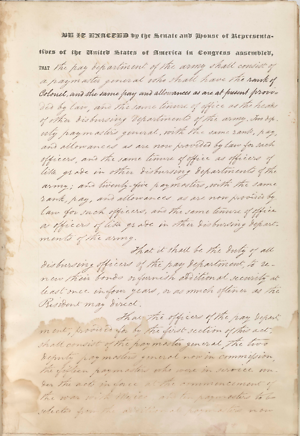 BE IT ENACTED by the Senate and House of Representa-
tives of the United States of America in Congress assembled,
THAT the pay department of the army shall consist of
a paymaster general who shall have the rank of
Colonel, and the same pay and allowances as are at present provi-
ded by law, and the same tenure of office as the heads
of other disbursing departments of the army, two dep-
uty paymasters general, with the same rank, pay,
and allowances as are now provided by law for such
officers, and the same tenure of office as officers of
like grade in other disbursing departments of the
army; and twenty five paymasters, with the same
rank, pay, and allowances as are now provided by
law for such officers, and the same tenure of office
as officers of like grade in other disbursing depart-
ments of the army.
That it shall be the duty of all
disbursing officers of the pay department, to re-
new their bonds or furnish additional security at
least once in four years, or as much oftener as the
President may direct.
That the officers of the pay depart-
ment, provided for by the first section of this act,
shall consist of the paymaster general, the two
deputy paymasters general now in commission,
the paymasters who are in service un-
der the act in force at the commencement of
the war with Mexico, paymasters to be
selected from the